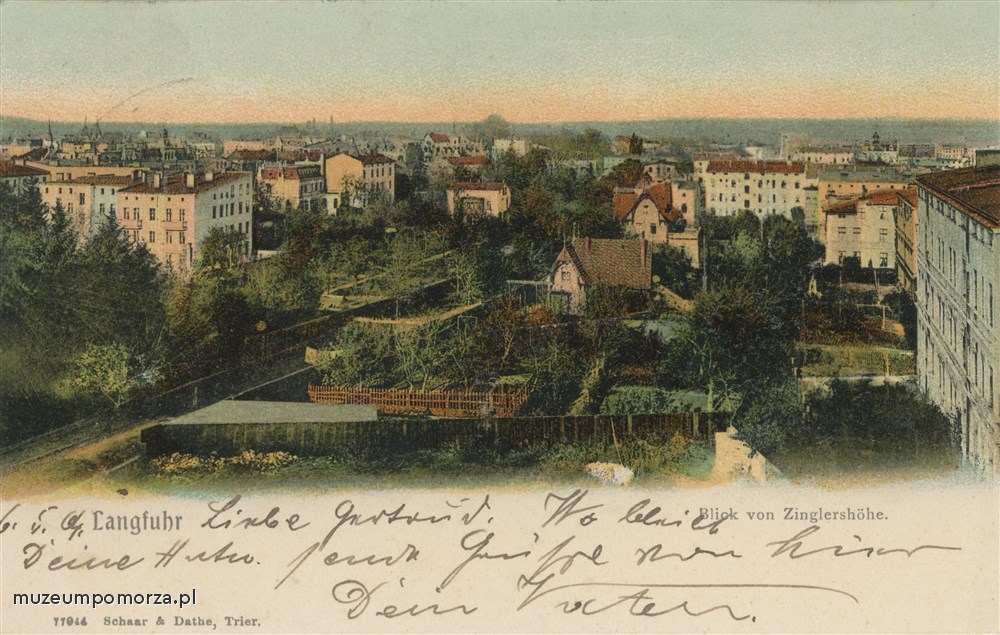 6. 5. 04. Langfuhr Liebe Gertrud. Wo bleibt Blick von Zinglershöhe.
Deine sende Grüsse von hier
Dein Vater.
muzeumpomorza.pl
Schaar & Dathe, Trier.